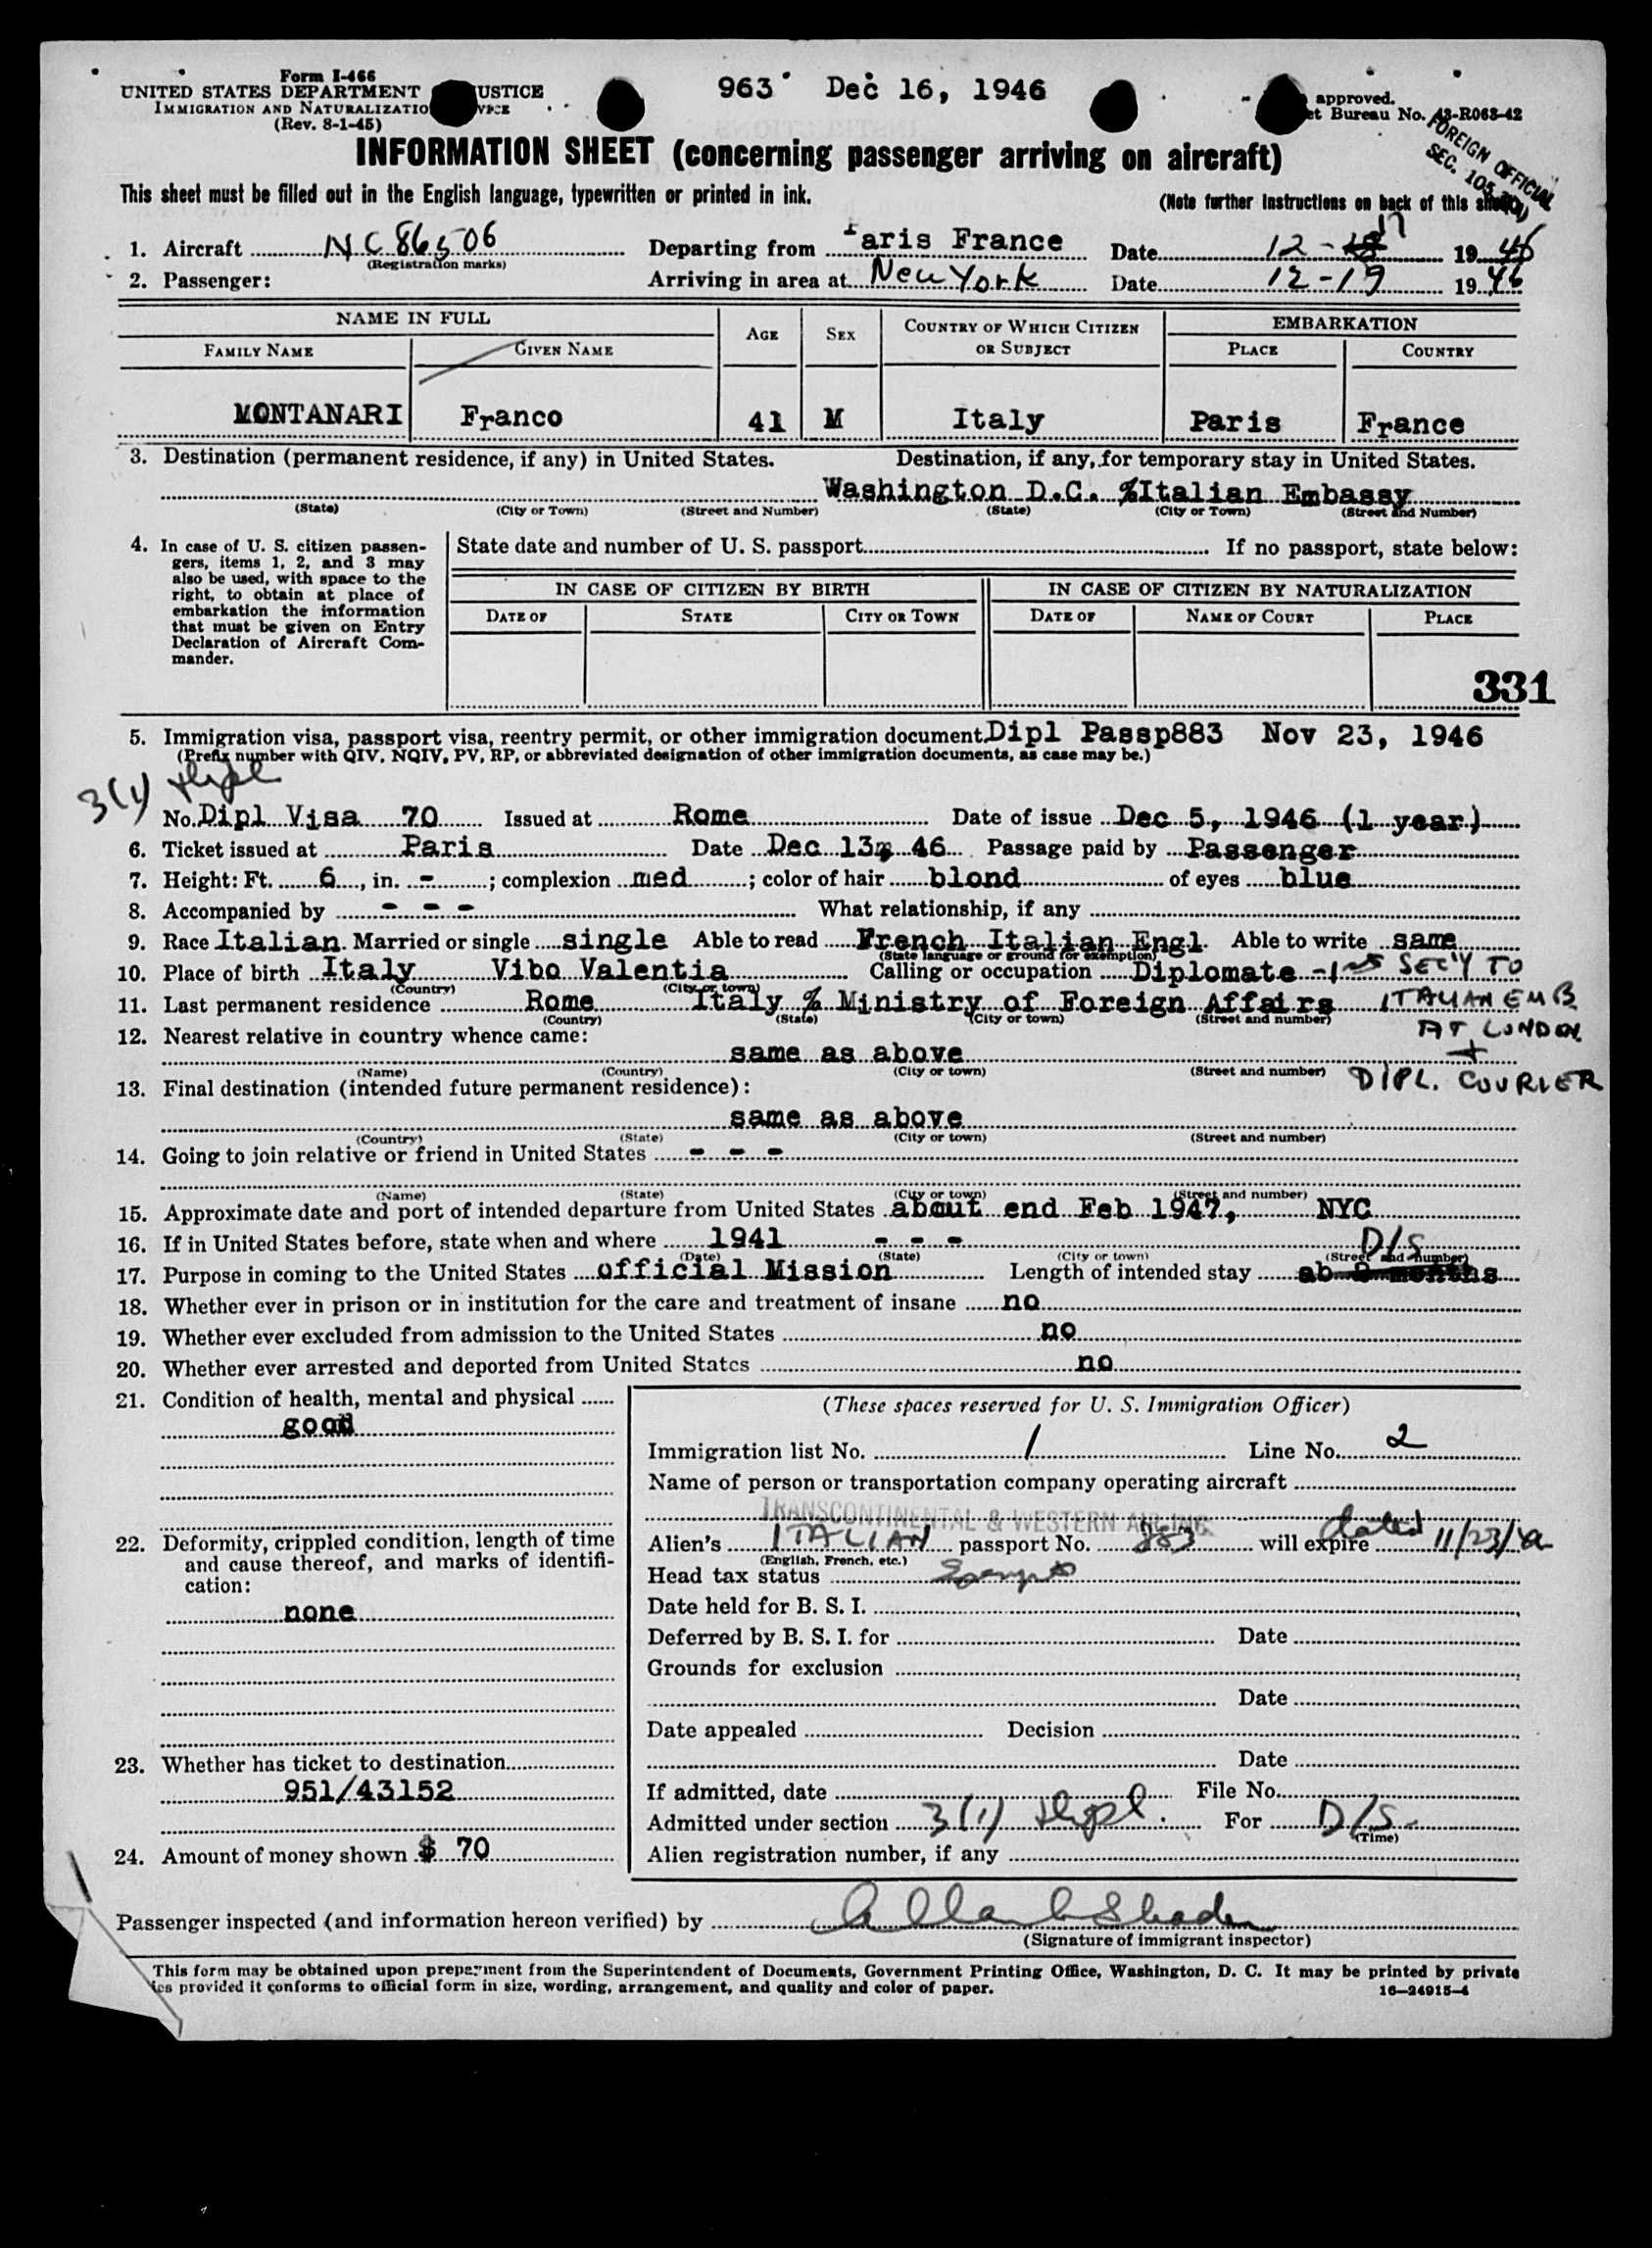 Form I-466
UNITED STATES DEPARTMENT USTICE
IMMIGRATION AND NATURALIZATIO VICE
(Rev. 8-1-45)
963 Dec 16, 1946
approved.
et Bureau No. 43-R068-42
FOREIGN OFFICIAL
SEC. 105
INFORMATION SHEET (concerning passenger arriving on aircraft)
This sheet must be filled out in the English language, typewritten or printed in ink.
(Note further instructions on back of this sheet)
1. Aircraft NC86506 Departing from Paris France Date 12-17 1946
(Registration marks)
2. Passenger: Arriving in area at New York Date 12-19 1946
NAME IN FULL AGE SEX COUNTRY OF WHICH CITIZEN OR SUBJECT EMBARKATION
FAMILY NAME GIVEN NAME PLACE COUNTRY
MONTANARI Franco 41 M Italy Paris France
3. Destination (permanent residence, if any) in United States. Destination, if any, for temporary stay in United States.
Washington D.C. %Italian Embassy
(State) (City or Town) (Street and Number) (State) (City or Town) (Street and Number)
4. In case of U. S. citizen passen-
gers, items 1, 2, and 3 may
also be used, with space to the
right, to obtain at place of
embarkation the information
that must be given on Entry
Declaration of Aircraft Com-
mander.
State date and number of U. S. passport If no passport, state below:
IN CASE OF CITIZEN BY BIRTH IN CASE OF CITIZEN BY NATURALIZATION
DATE OF STATE CITY OR TOWN DATE OF NAME OF COURT PLACE
331
5. Immigration visa, passport visa, reentry permit, or other immigration document, Dipl Passp883 Nov 23, 1946
(Prefix number with QIV, NQIV, PV, RP, or abbreviated designation of other immigration documents, as case may be.)
3(1) dipl
No. Dipl Visa 70 Issued at Rome Date of issue Dec 5, 1946 (1 year)
6. Ticket issued at Paris Date Dec 13, 46 Passage paid by Passenger
7. Height: Ft. 6, in. -; complexion med; color of hair blond of eyes blue
8. Accompanied by - - - What relationship, if any
9. Race Italian. Married or single single Able to read French Italian Engl. Able to write same
(State language or ground for exemption)
10. Place of birth Italy Vibo Valentia Calling or occupation Diplomate - 1st SEC'Y TO
(Country) (City or town)
11. Last permanent residence Rome Italy % Ministry of Foreign Affairs ITALIAN EMB
(Country) (State) (City or town) (Street and number)
AT LONDON
12. Nearest relative in country whence came:
same as above +
(Name) (Country) (City or town) (Street and number)
DIPL. COURIER
13. Final destination (intended future permanent residence):
same as above
(Country) (State) (City or town) (Street and number)
14. Going to join relative or friend in United States - - -
(Name) (State) (City or town) (Street and number)
15. Approximate date and port of intended departure from United States about end Feb 1947, NYC
16. If in United States before, state when and where 1941 - - -
(Date) (State) (City or town) (Street and number)
D/S
17. Purpose in coming to the United States official Mission Length of intended stay ab months
18. Whether ever in prison or in institution for the care and treatment of insane no
19. Whether ever excluded from admission to the United States no
20. Whether ever arrested and deported from United States no
21. Condition of health, mental and physical
good
22. Deformity, crippled condition, length of time
and cause thereof, and marks of identifi-
cation:
none
23. Whether has ticket to destination
951/43152
24. Amount of money shown $ 70
(These spaces reserved for U. S. Immigration Officer)
Immigration list No. 1 Line No. 2
Name of person or transportation company operating aircraft
TRANSCONTINENTAL & WESTERN AIR, INC.
Alien's ITALIAN passport No. 883 will expire dated 11/23/
(English, French, etc.)
Head tax status Exempt
Date held for B. S. I.
Deferred by B. S. I. for Date
Grounds for exclusion
Date
Date appealed Decision
Date
If admitted, date File No.
Admitted under section 3(1) dipl. For D/S
(Time)
Alien registration number, if any
Passenger inspected (and information hereon verified) by
(Signature of immigrant inspector)
This form may be obtained upon prepayment from the Superintendent of Documents, Government Printing Office, Washington, D. C. It may be printed by private
ies provided it conforms to official form in size, wording, arrangement, and quality and color of paper.
16—24915-4